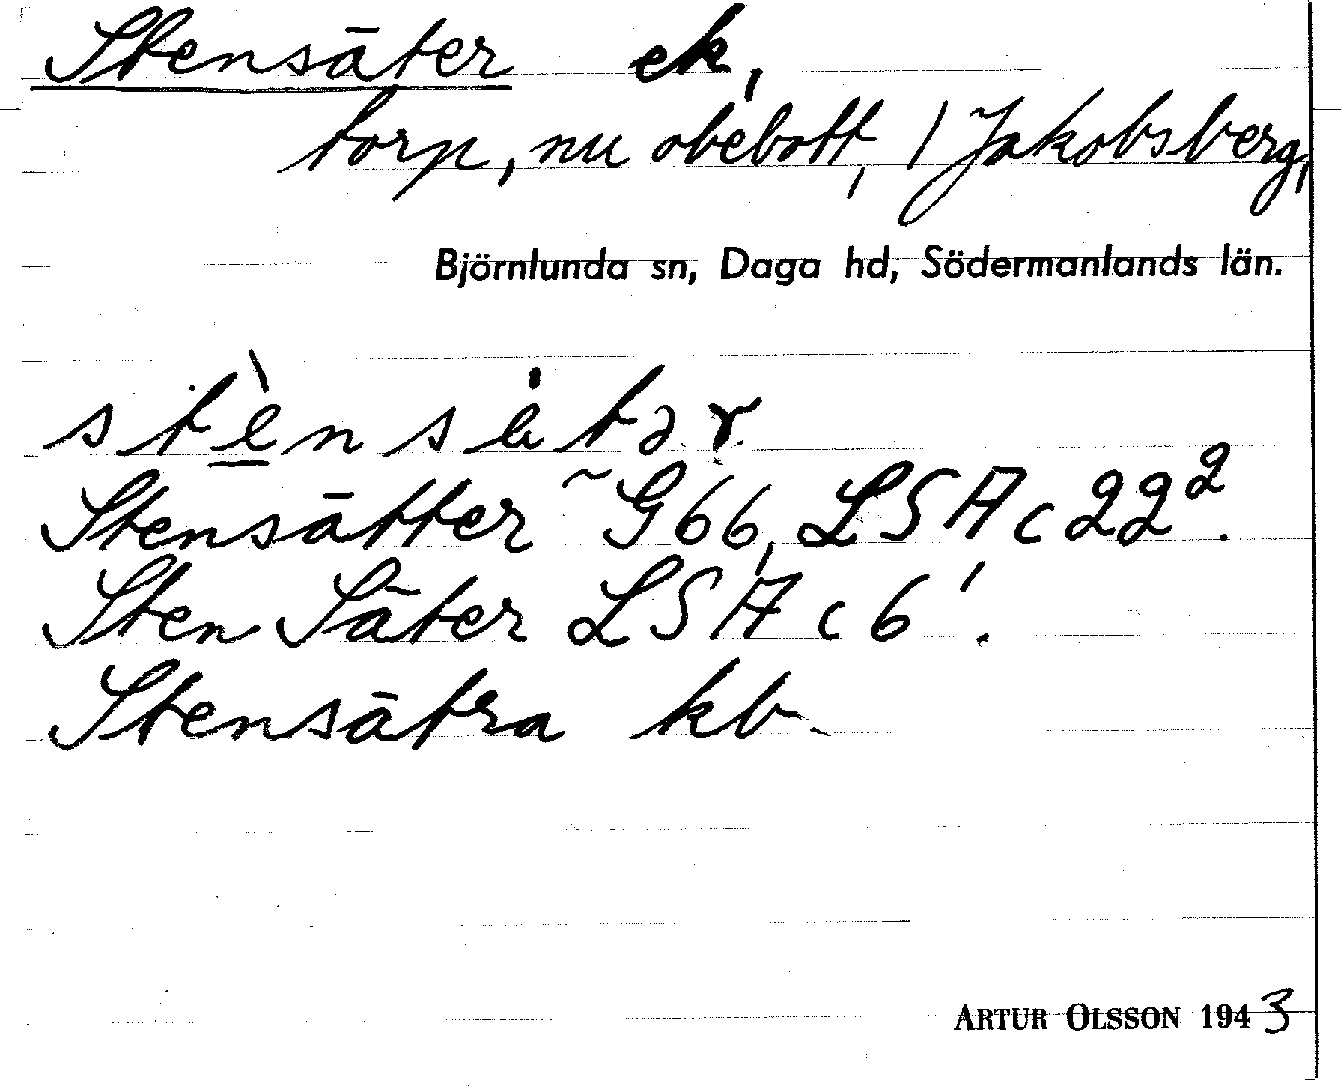 Stensäter ek,
torp, nu obebott, / Jakobsberg,
Björnlunda sn, Daga hd, Södermanlands län.
Stensätter ~ G66, LSA c 22².
Sten Säter LSA c 6¹.
Stensätra kb
ARTUR OLSSON 1943